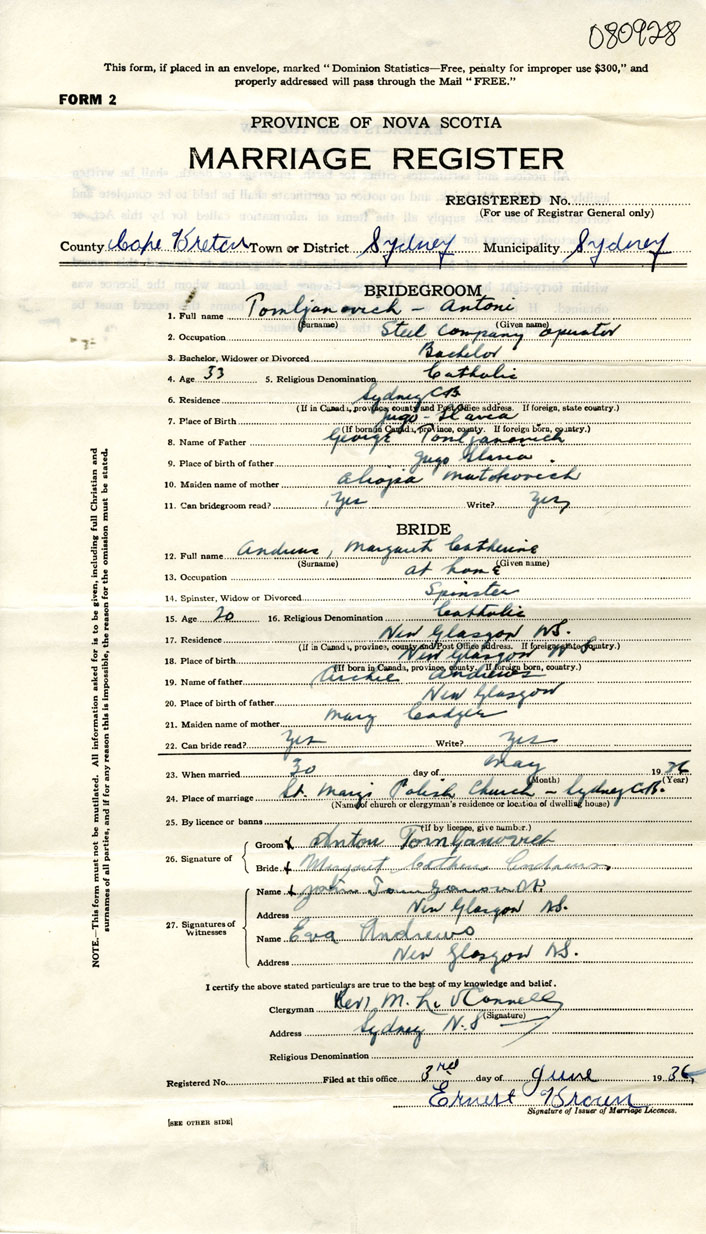 080928
This form, if placed in an envelope, marked "Dominion Statistics—Free, penalty for improper use $300," and
properly addressed will pass through the Mail "FREE."
FORM 2
PROVINCE OF NOVA SCOTIA
MARRIAGE REGISTER
REGISTERED No.
(For use of Registrar General only)
County Cape Breton Town or District Sydney Municipality Sydney
BRIDEGROOM
1. Full name Tomljanovich - Antoni
(Surname) (Given name)
2. Occupation Steel Company operator
3. Bachelor, Widower or Divorced Bachelor
4. Age 33 5. Religious Denomination Catholic
6. Residence Sydney CB
(If in Canada, province, county and Post Office address. If foreign, state country.)
7. Place of Birth Jugo-Slavia
(If born in Canada, province, county. If foreign born, country.)
8. Name of Father George Tomljanovich
9. Place of birth of father Jugo Slavia.
10. Maiden name of mother Matokovich
11. Can bridegroom read? Yes Write? Yes
BRIDE
12. Full name Andrews, Margaret Catherine
(Surname) (Given name)
13. Occupation at home
14. Spinster, Widow or Divorced Spinster
15. Age 20 16. Religious Denomination Catholic
17. Residence New Glasgow NS.
(If in Canada, province, county and Post Office address. If foreign, state country.)
18. Place of birth New Glasgow N S
(If born in Canada, province, county. If foreign born, country.)
19. Name of father Archie Andrews
20. Place of birth of father New Glasgow
21. Maiden name of mother Mary
22. Can bride read? Yes Write? Yes
23. When married 30 day of May 1936
(Month) (Year)
24. Place of marriage St. Marys Polish Church - Sydney C.B.
(Name of church or clergyman's residence or location of dwelling house)
25. By licence or banns
(If by licence, give number.)
26. Signature of
Groom x Anton Tomljanovich
Bride x Margaret Andrews
27. Signatures of Witnesses
Name x John
Address New Glasgow NS.
Name Eva Andrews
Address New Glasgow NS.
I certify the above stated particulars are true to the best of my knowledge and belief.
Clergyman Rev M. L. O'Connell
(Signature)
Address Sydney N.S
Religious Denomination
Registered No. Filed at this office 3rd day of June 1936
Ernest Brown
Signature of Issuer of Marriage Licences.
[SEE OTHER SIDE]
NOTE.—This form must not be mutilated. All information asked for is to be given, including full Christian and
surnames of all parties, and if for any reason this is impossible, the reason for the omission must be stated.